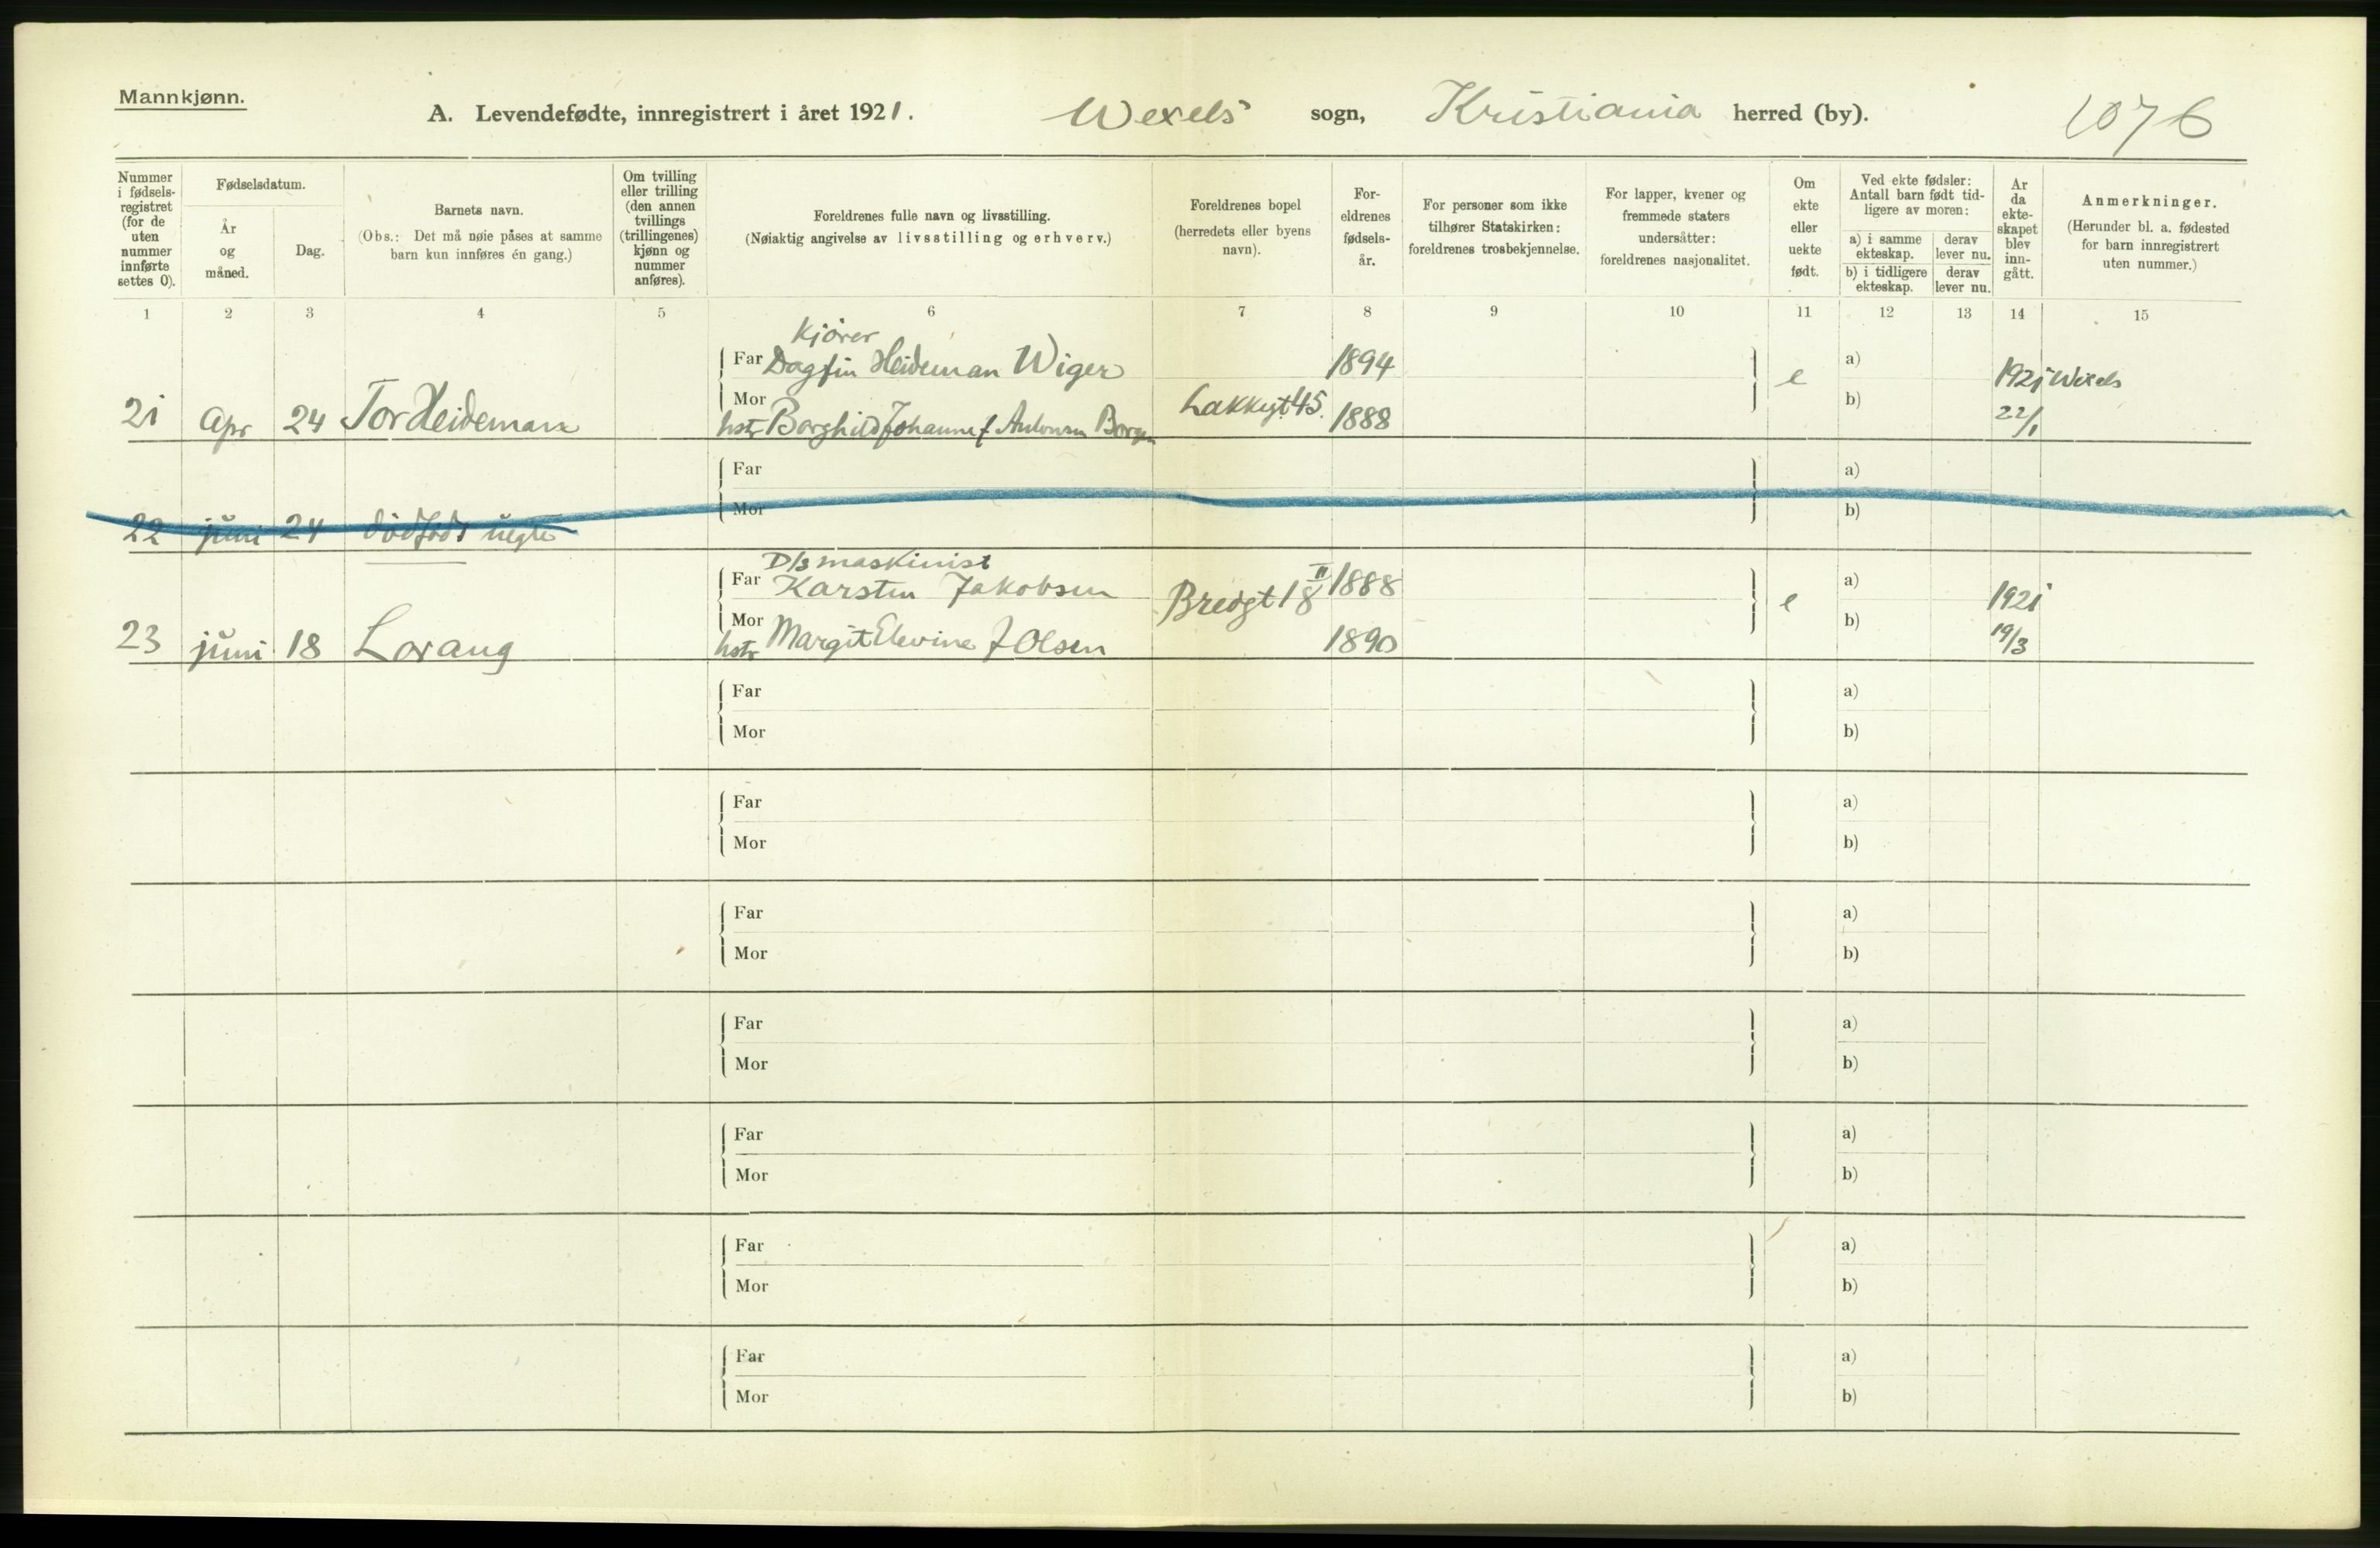 Mannkjønn.
A. Levendefødte, innregistrert i året 1921. Wexels sogn, Kristiania herred (by). 1076
Nummer i fødsels-registret (for de uten nummer innførte settes 0).
Fødselsdatum.
År og måned.
Dag.
Barnets navn.
(Obs.: Det må nøie påses at samme barn kun innføres én gang.)
Om tvilling eller trilling (den annen tvillings (trillingenes) kjønn og nummer anføres).
Foreldrenes fulle navn og livsstilling.
(Nøiaktig angivelse av livsstilling og erhverv.)
Foreldrenes bopel (herredets eller byens navn).
For-eldrenes fødsels-år.
For personer som ikke tilhører Statskirken: foreldrenes trosbekjennelse.
For lapper, kvener og fremmede staters undersåtter: foreldrenes nasjonalitet.
Om ekte eller uekte født.
Ved ekte fødsler: Antall barn født tid-ligere av moren:
a) i samme ekteskap.
derav lever nu.
b) i tidligere ekteskap.
derav lever nu.
År da ekte-skapet blev inn-gått.
Anmerkninger.
(Herunder bl. a. fødested for barn innregistrert uten nummer.)
1 2 3 4 5 6 7 8 9 10 11 12 13 14 15
Kjörer
Far Dagfin Heideman Wiger 1894 e a) 1921 Wexels
Mor Lakkegt 45. b)
21 Apr 24 Tor Heideman hstr Borghild Johanne f Antonsen Borgen 1888 22/1
Far a)
Mor b)
22 juni 24 dödfödt uegte
D/s maskinist
Far Karsten Jakobsen Bredgt 18 II 1888 e a) 1921
Mor b)
23 juni 18 Lorang hstr Margit Elevine f Olsen 1890 19/3
Far a)
Mor b)
Far a)
Mor b)
Far a)
Mor b)
Far a)
Mor b)
Far a)
Mor b)
Far a)
Mor b)
Far a)
Mor b)